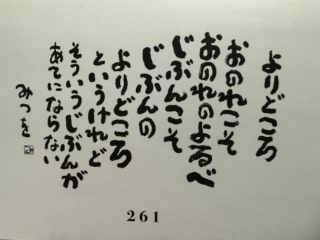 よりどころ
おのれこそ
おのれのよるべ
じぶんこそ
じぶんの
よりどころ
というけれど
そういうじぶんが
あてにならない
みつを
261